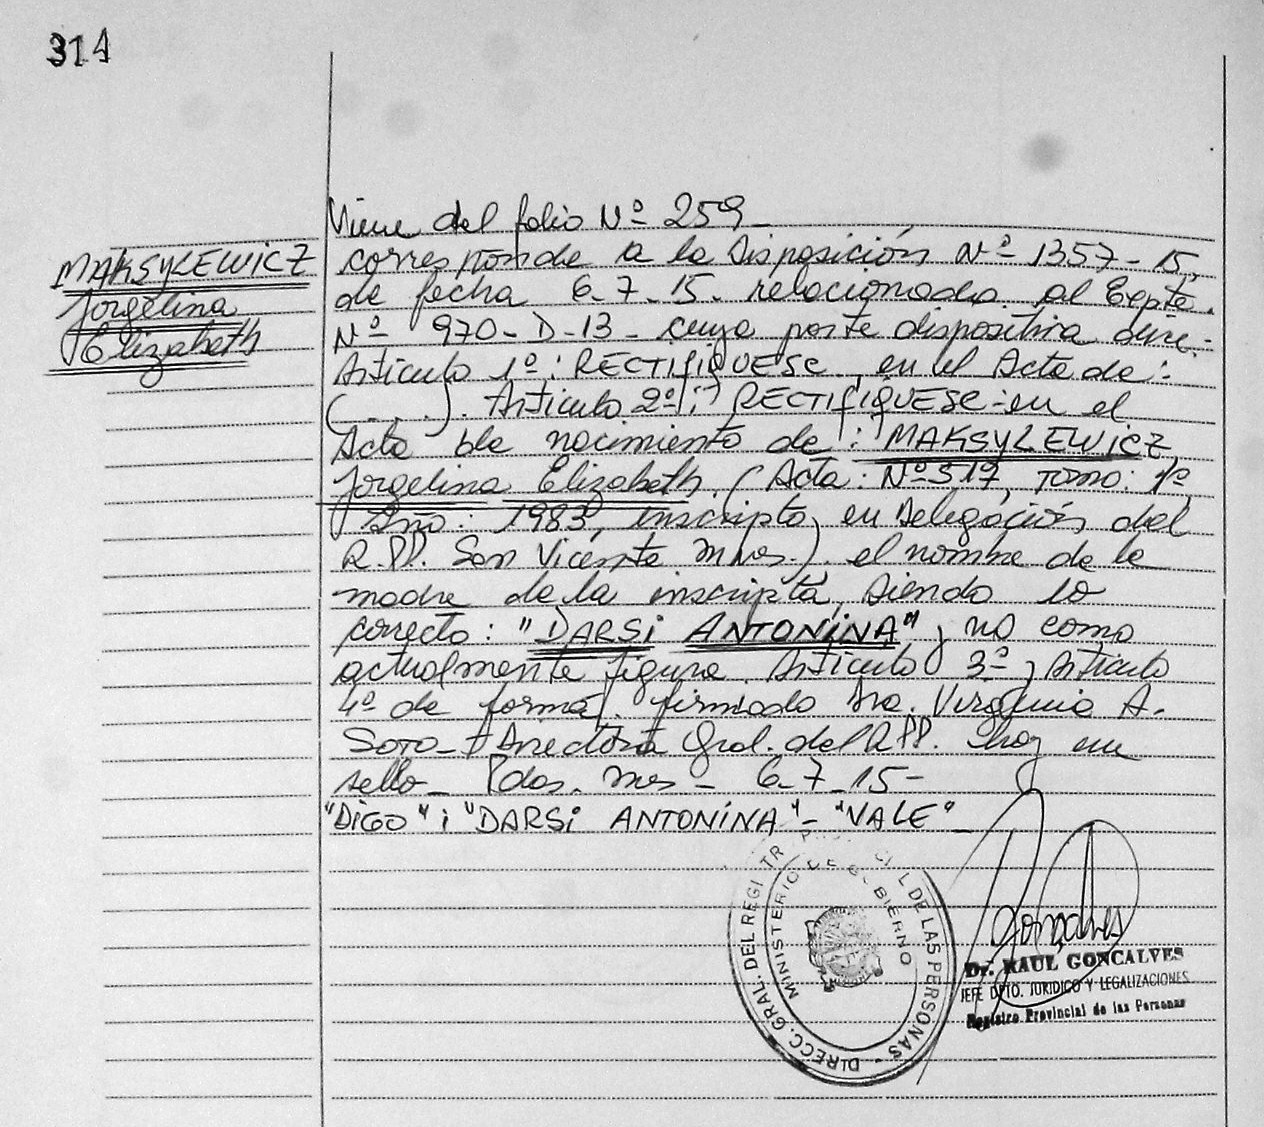 314
MAKSYLEWICZ
Jorgelina
Elizabeth
Viene del folio Nº 259_
corresponde a la Disposición Nº 1357-15,
de fecha 6-7-15. relacionada al Expte.
Nº 970-D-13- cuya parte dispositiva dice:
Artículo 1º: RECTIFIQUESE, en el Acta de:
(.....). Artículo 2º: RECTIFIQUESE-en el
Acta de nacimiento de: MAKSYLEWICZ
Jorgelina Elizabeth (Acta: Nº 517, Tomo: 1º
Año: 1983, inscripta, en Delegación del
R.PP. San Vicente Mnes.). el nombre de la
madre de la inscripta, siendo lo
correcto: "DARSi ANTONiNA", no como
actualmente figura. Artículo 3º, Artículo
4º de forma. firmado Dra. Virginia A.
Soto- Directora Gral. del R PP. hay un
sello- Pdas. Mnes- 6-7-15-
"DiGO": "DARSi ANTONíNA"- "VALE"
DIRECC. GRAL. DEL REGISTRO PROVINCIAL DE LAS PERSONAS -
MINISTERIO DE GOBIERNO
Goncalves
Dr. RAUL GONCALVES
JEFE DPTO. JURIDICO Y LEGALIZACIONES
Registro Provincial de las Personas